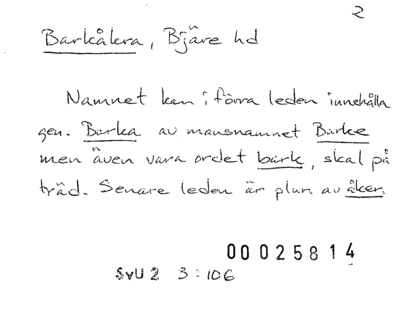 2
Barkåkra, Bjäre hd
Namnet kan i förra leden innehålla
gen. Barka av mansnamnet Barke
men även vara ordet bark, skal på
träd. Senare leden är plur. av åker.
00025814
SvU 2 3:106